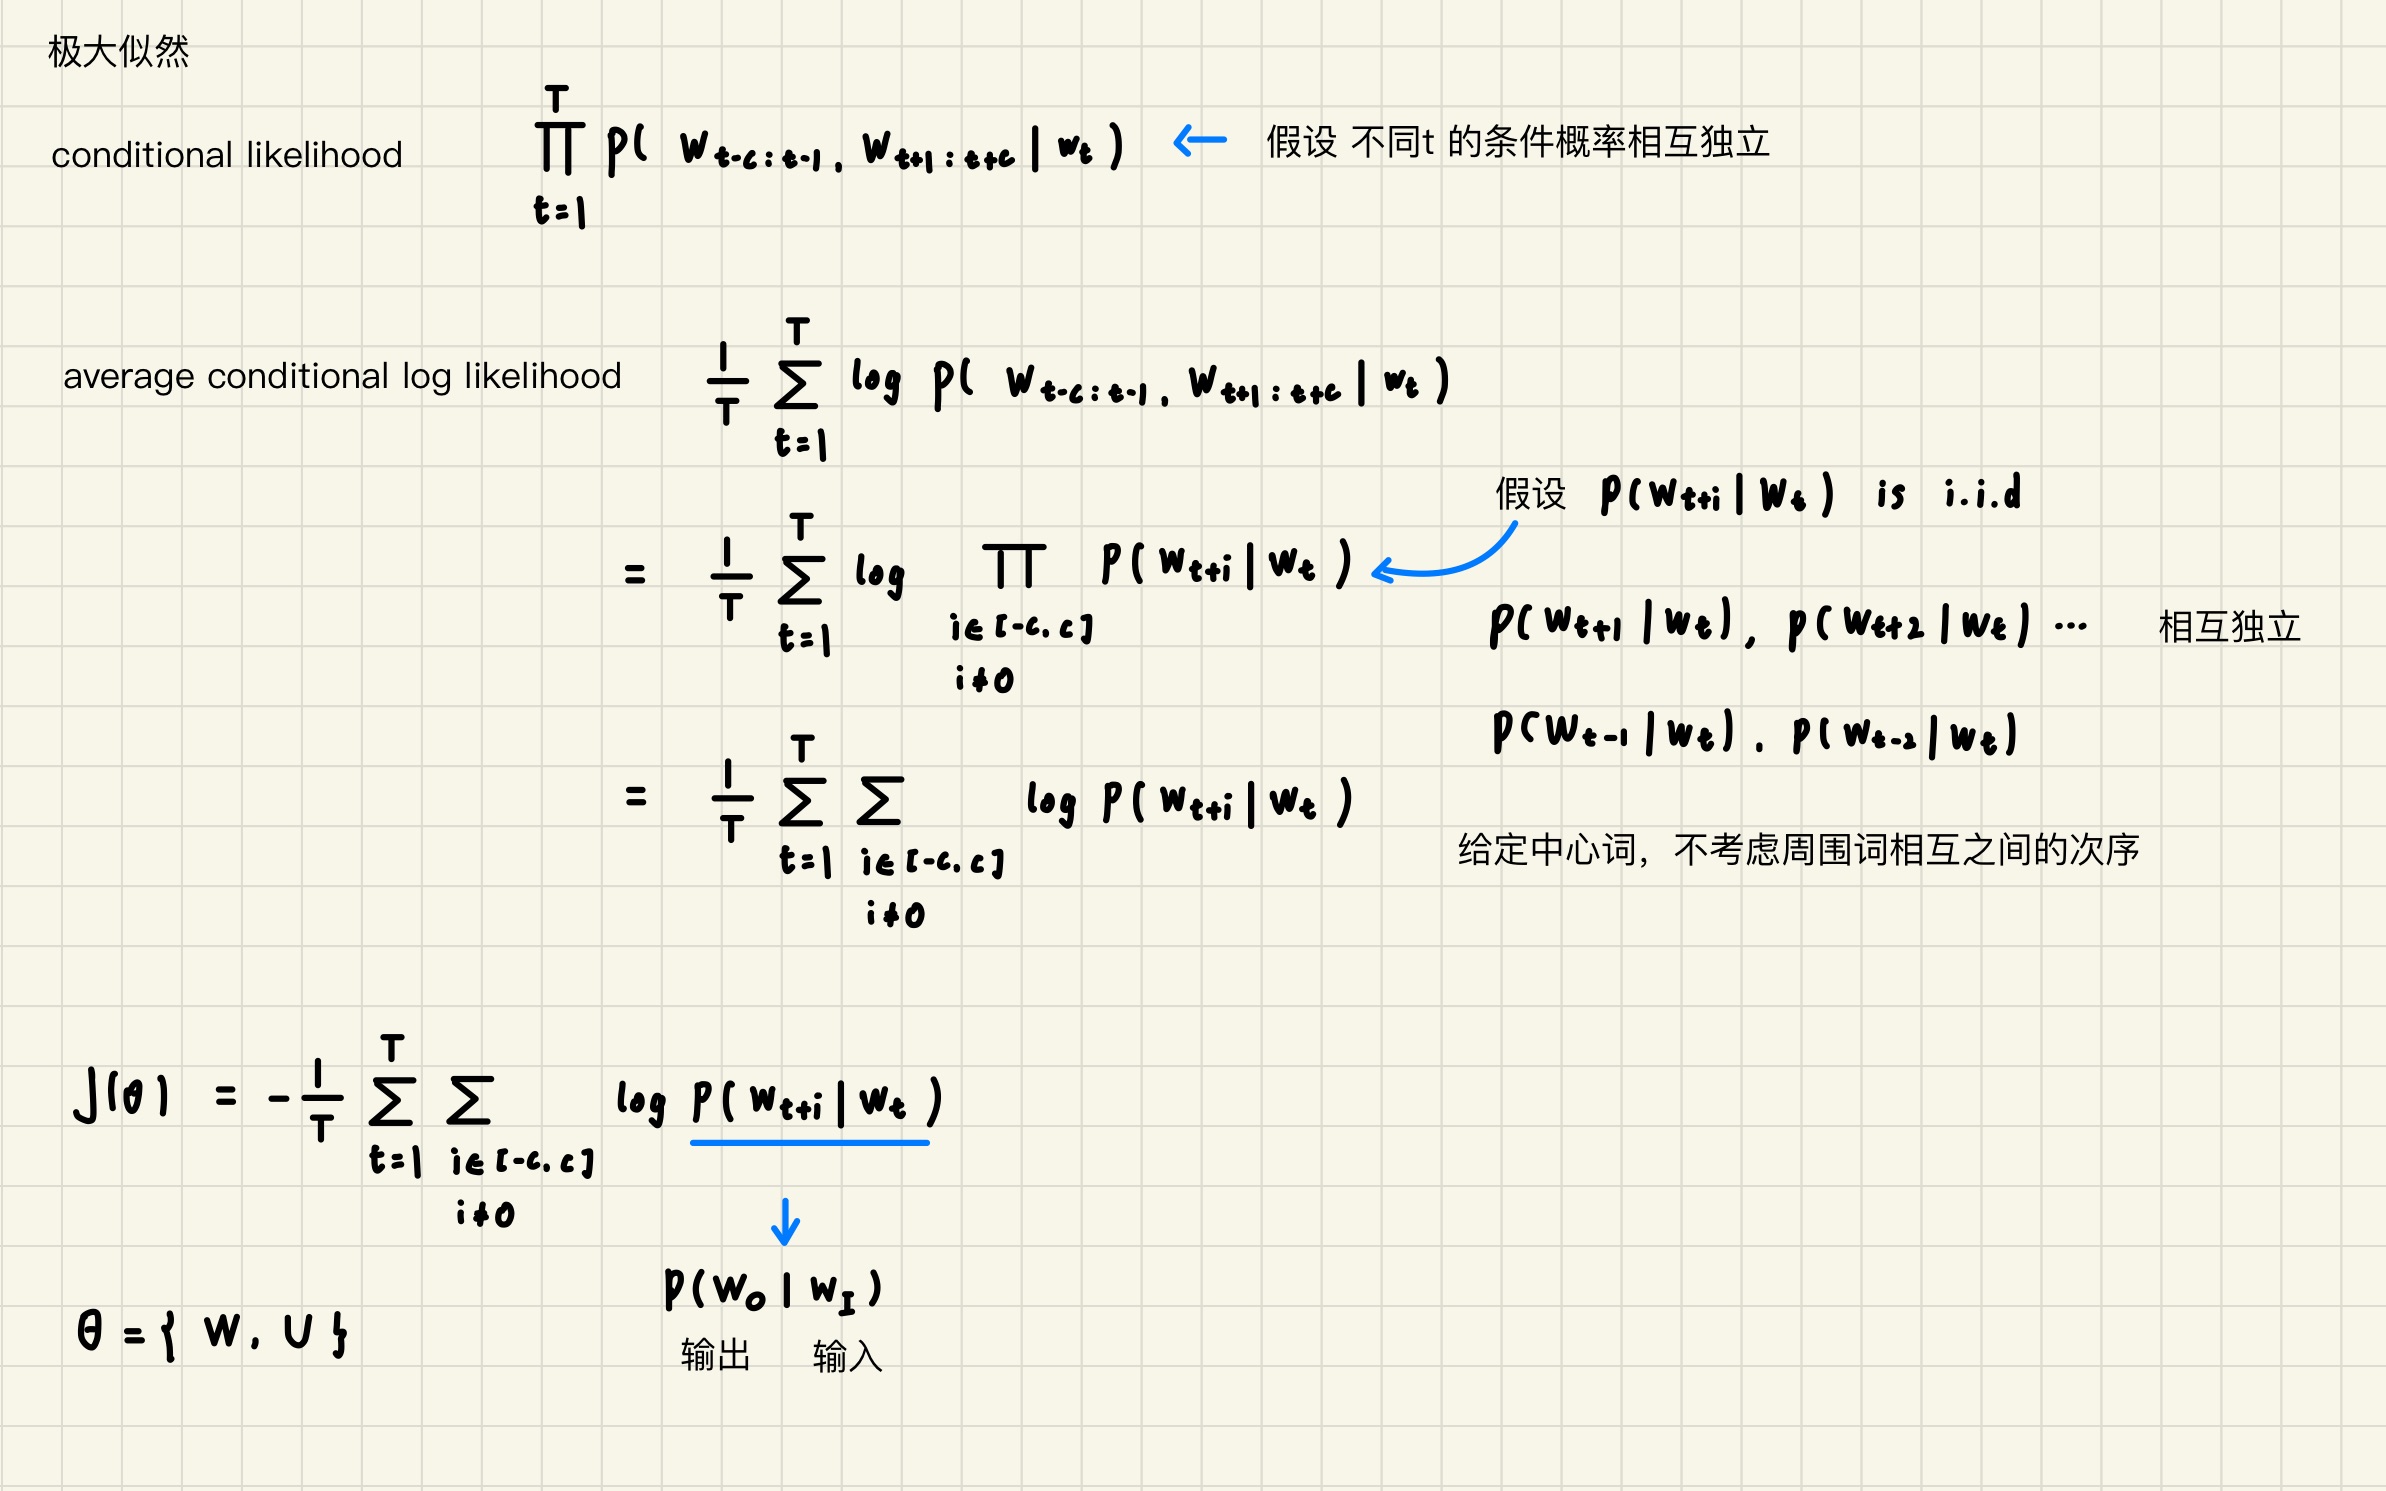 极大似然
conditional likelihood ∏_{t=1}^{T} p( w_{t-c:t-1}, w_{t+1:t+c} | w_t ) ← 假设 不同t 的条件概率相互独立
average conditional log likelihood 1/T ∑_{t=1}^{T} log p( w_{t-c:t-1}, w_{t+1:t+c} | w_t )
假设 p(w_{t+i} | w_t) is i.i.d
= 1/T ∑_{t=1}^{T} log ∏_{i∈[-c,c] i≠0} p( w_{t+i} | w_t )
p( w_{t+1} | w_t ), p( w_{t+2} | w_t ) ··· 相互独立
p( w_{t-1} | w_t ), p( w_{t-2} | w_t )
= 1/T ∑_{t=1}^{T} ∑_{i∈[-c,c] i≠0} log p( w_{t+i} | w_t )
给定中心词，不考虑周围词相互之间的次序
J(θ) = - 1/T ∑_{t=1}^{T} ∑_{i∈[-c,c] i≠0} log p( w_{t+i} | w_t )
↓
p( w_o | w_I )
θ = { W, U }
输出 输入